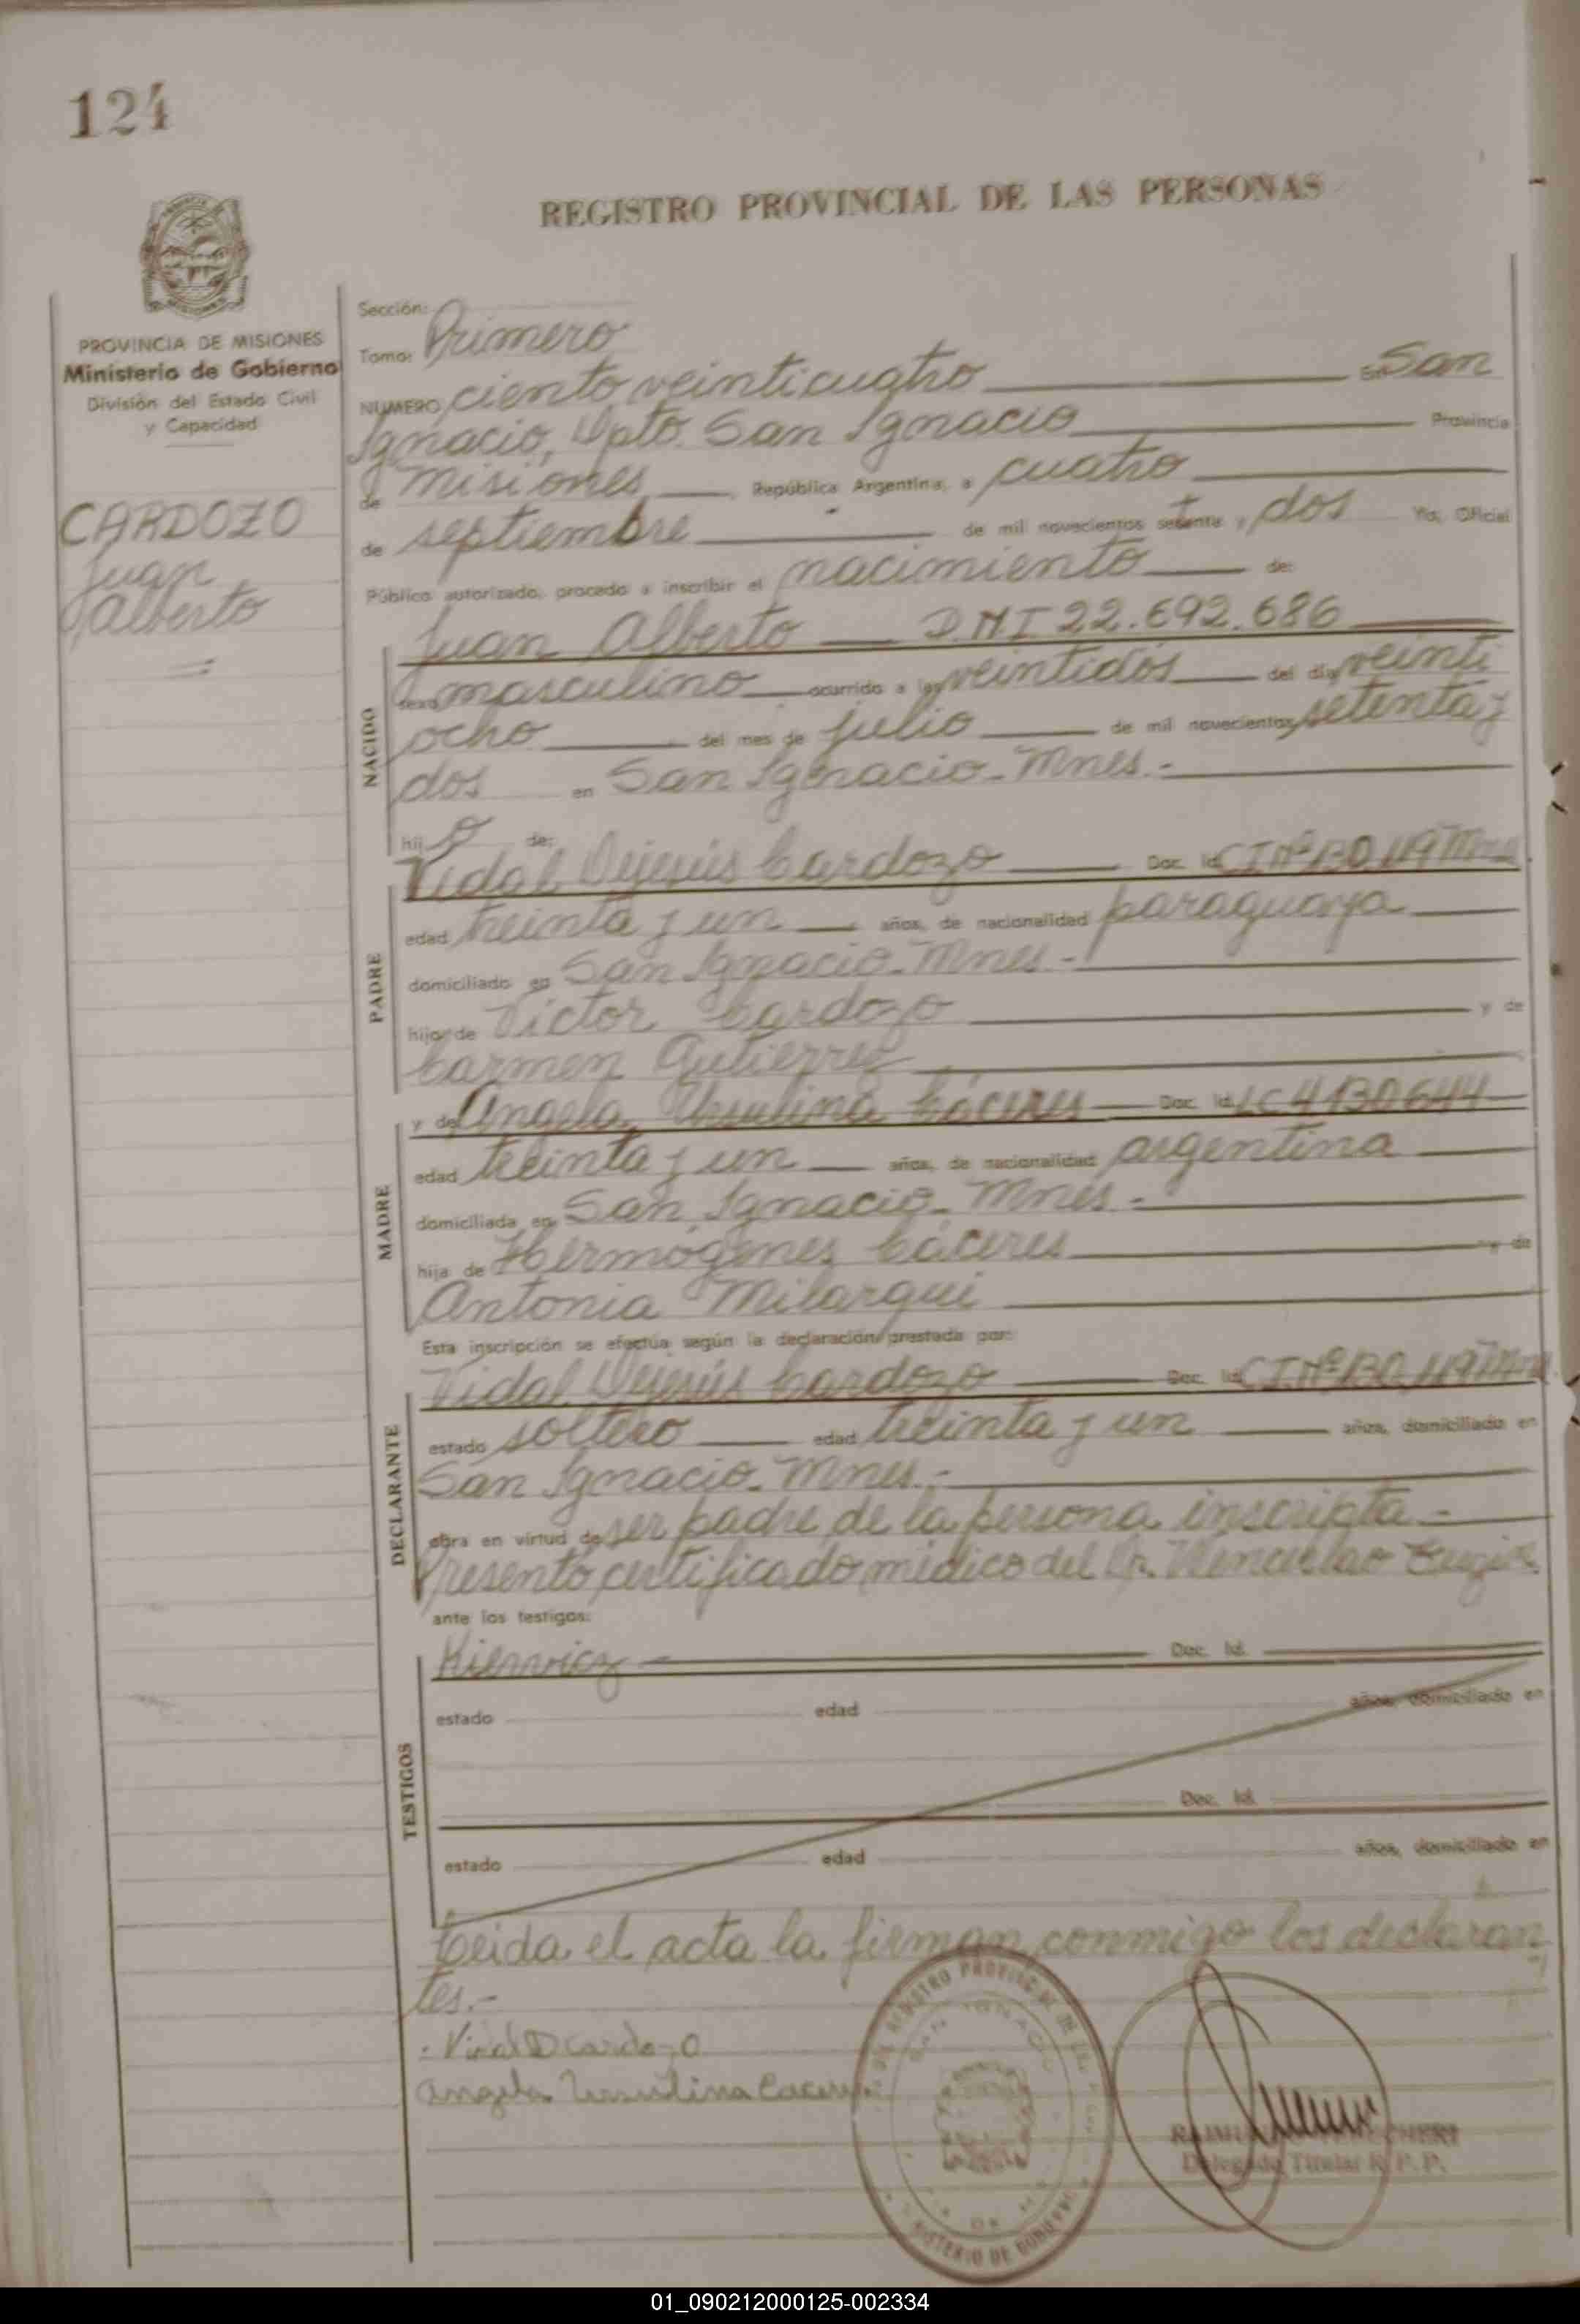 124
REGISTRO PROVINCIAL DE LAS PERSONAS
PROVINCIA DE MISIONES
Ministerio de Gobierno
División del Estado Civil
y Capacidad
CARDOZO
Juan
Alberto
Sección:
Tomo: Primero
NUMERO ciento veinticuatro En San
Ignacio, Dpto. San Ignacio Provincia
de Misiones, República Argentina, a cuatro
de septiembre de mil novecientos setenta y dos Yo, Oficial
Público autorizado, procedo a inscribir el nacimiento de:
NACIDO
Juan Alberto DNI 22.692.686
sexo masculino ocurrido a las veintidós del día veinti
ocho del mes de julio de mil novecientos setenta y
dos en San Ignacio - Mnes.-
hijo de:
PADRE
Vidal Dejesús Cardozo Doc. Id. CI Nº 130.119
edad treinta y un años, de nacionalidad paraguaya
domiciliado en San Ignacio - Mnes.-
hijo de Víctor Cardozo y de
Carmen Gutierrez
MADRE
y de Angela Ursulina Cáceres Doc. Id. LC 4130644
edad treinta y un años, de nacionalidad argentina
domiciliada en San Ignacio - Mnes.-
hija de Hermógenes Cáceres y de
Antonia Milarqui
Esta inscripción se efectúa según la declaración prestada por:
DECLARANTE
Vidal Dejesús Cardozo Doc. Id. CI. Nº 130.119
estado soltero edad treinta y un años, domiciliado en
San Ignacio - Mnes.-
obra en virtud de ser padre de la persona inscripta.-
Presentó certificado médico del Dr. Wenceslao
ante los testigos:
TESTIGOS
Kiewicz Doc. Id.
estado edad años, domiciliado en
Doc. Id.
estado edad años, domiciliado en
Leida el acta la firman conmigo los declaran
tes.-
Vidal D Cardozo
Angela Ursulina Caceres
REGISTRO PROVINCIAL DE LAS
SAN IGNACIO
MINISTERIO DE GOBIERNO
Delegado Titular R. P. P.
01_090212000125-002334